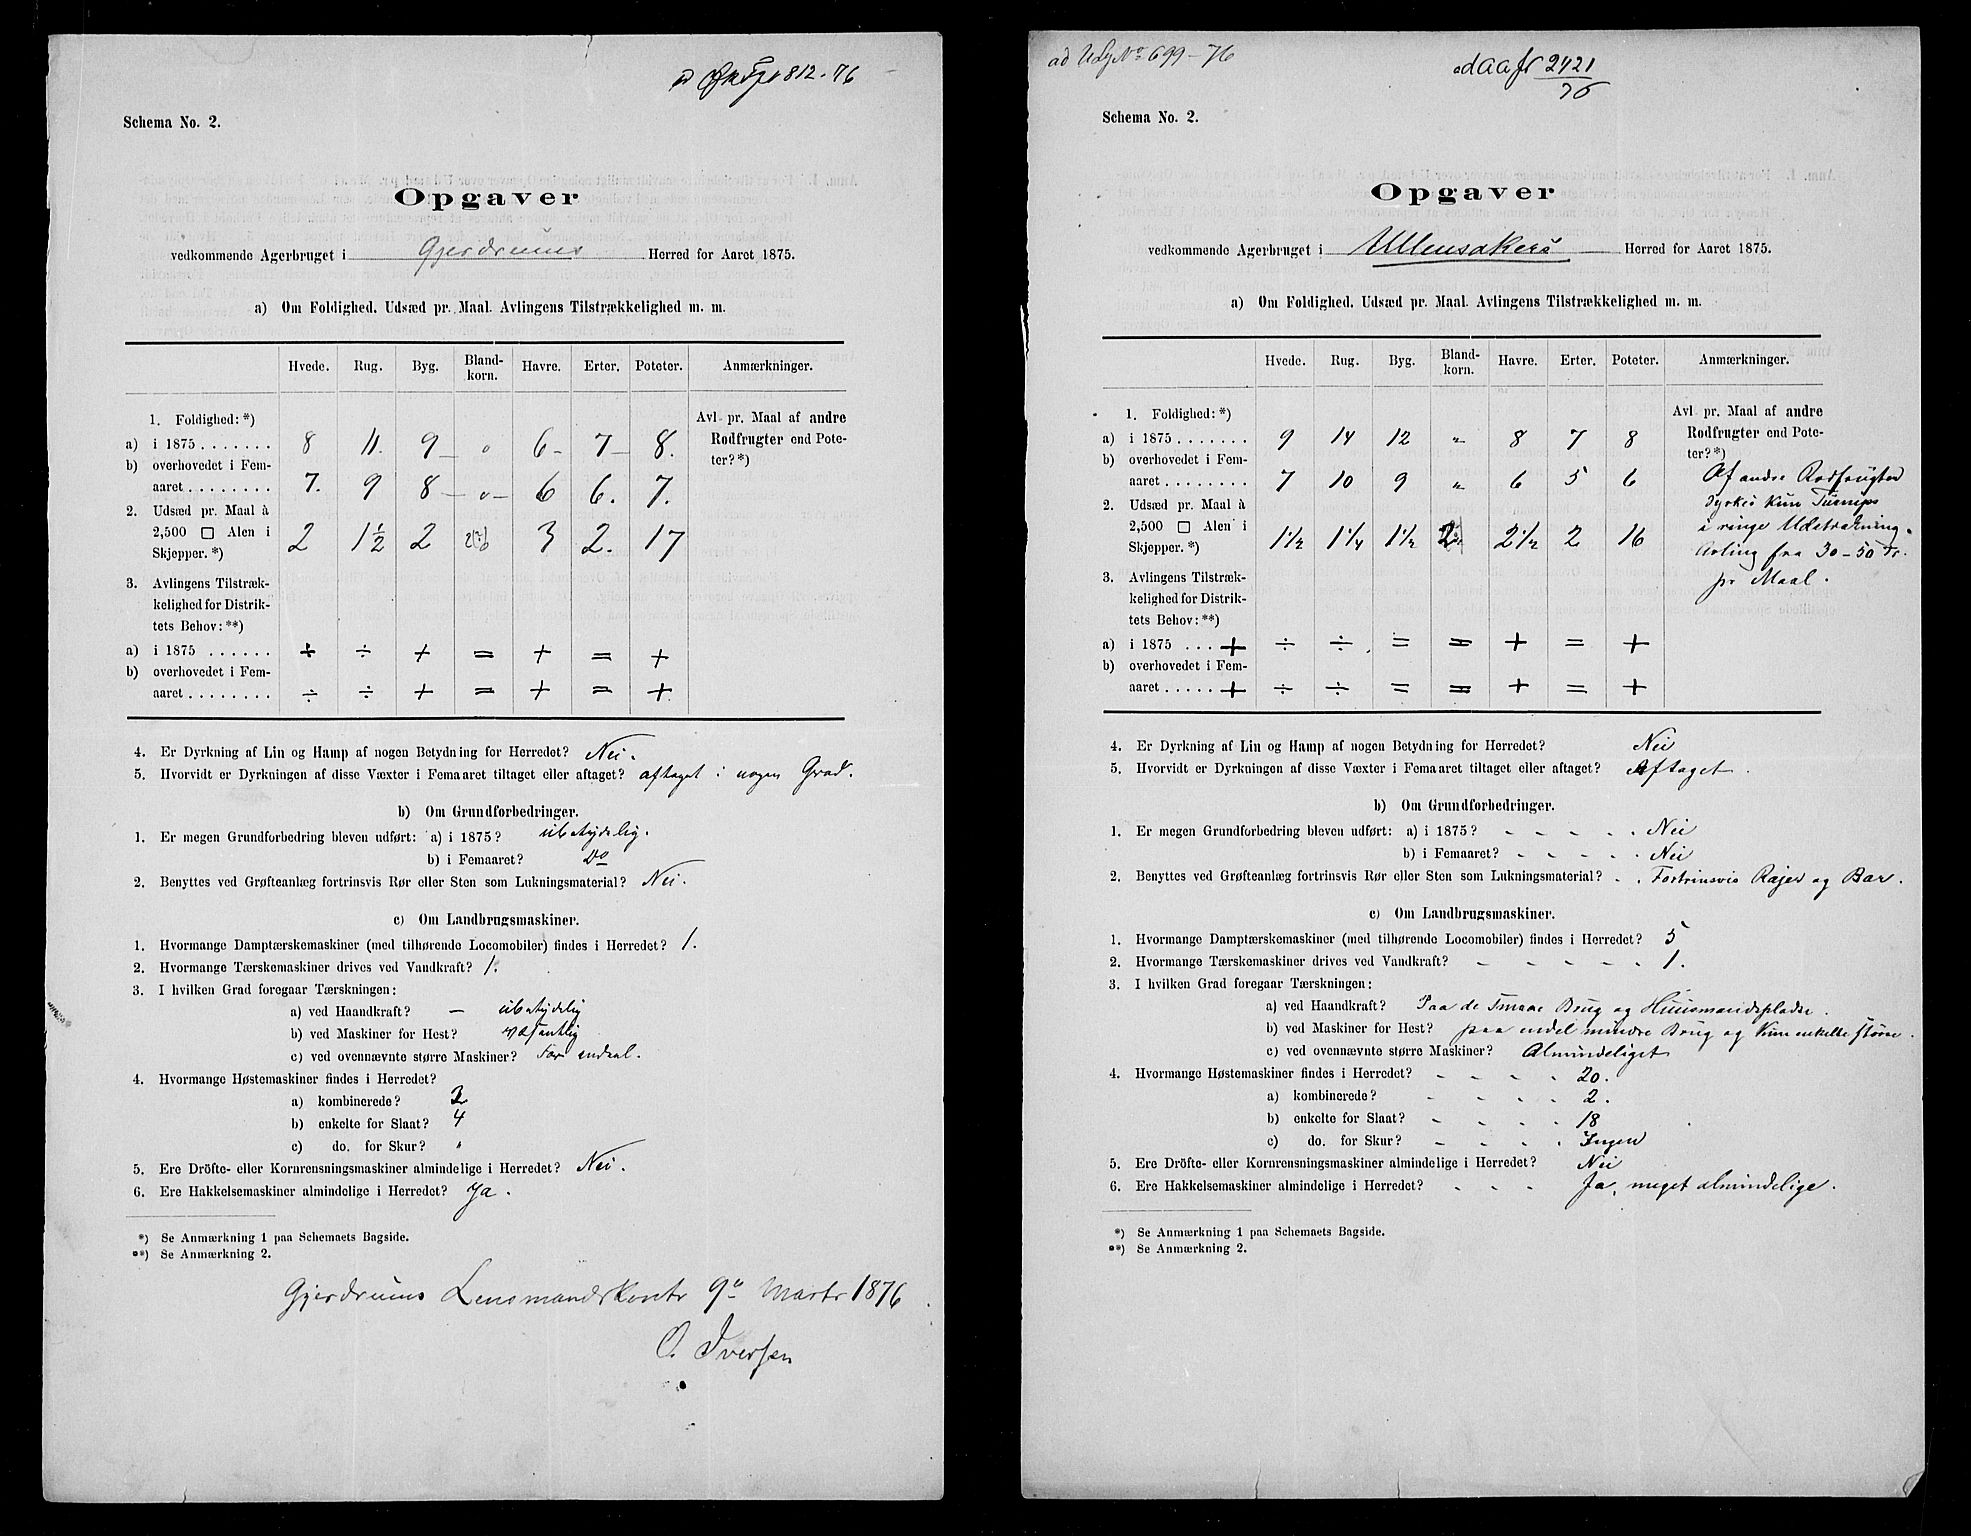 812-76
Schema No. 2.
Opgaver
vedkommende Agerbruget i Gjerdrums Herred for Aaret 1875.
a) Om Foldighed. Udsæd pr. Maal. Avlingens Tilstrækkelighed m. m.
Hvede. Rug. Byg. Bland- Havre. Erter. Poteter. Anmærkninger.
korn.
1. Foldighed: *) Avl pr. Maal af andre
a) i 1875 . . . . . . . 8 11. 9 — o 6 - 7 — 8. Rodfrugter end Pote-
b) overhovedet i Fem- ter? *)
aaret . . . . . . . . 7. 9 8 — o — 6 6. 7.
2. Udsæd pr. Maal à
2,500 □ Alen i 2 1½ 2 3 2. 17
Skjepper. *)
3. Avlingens Tilstræk-
kelighed for Distrik-
tets Behov: **)
a) i 1875 . . . . . . + ÷ + = + = +
b) overhovedet i Fem-
aaret . . . . . . . . ÷ ÷ + = + = +
4. Er Dyrkning af Lin og Hamp af nogen Betydning for Herredet? Nei.
5. Hvorvidt er Dyrkningen af disse Væxter i Femaaret tiltaget eller aftaget? aftaget i nogen Grad.
b) Om Grundforbedringer.
1. Er megen Grundforbedring bleven udført: a) i 1875? ubetydelig.
b) i Femaaret? Do
2. Benyttes ved Grøfteanlæg fortrinsvis Rør eller Sten som Lukningsmaterial? Nei.
c) Om Landbrugsmaskiner.
1. Hvormange Damptærskemaskiner (med tilhørende Locomobiler) findes i Herredet? 1.
2. Hvormange Tærskemaskiner drives ved Vandkraft? 1.
3. I hvilken Grad foregaar Tærskningen:
a) ved Haandkraft? — ubetydelig
b) ved Maskiner for Hest? væsentlig
c) ved ovennævnte større Maskiner? For endeel.
4. Hvormange Høstemaskiner findes i Herredet?
a) kombinerede? 2
b) enkelte for Slaat? 4
c) do. for Skur? "
5. Ere Dröfte- eller Kornrensningsmaskiner almindelige i Herredet? Nei.
6. Ere Hakkelsemaskiner almindelige i Herredet? Ja.
*) Se Anmærkning 1 paa Schemaets Bagside.
**) Se Anmærkning 2.
Gjerdrums Lensmandskontr 9de Marts 1876
O. Iversen
ad Udg No 699-76
2421
76
Schema No. 2.
Opgaver
vedkommende Agerbruget i Ullensakers Herred for Aaret 1875.
a) Om Foldighed. Udsæd pr. Maal. Avlingens Tilstrækkelighed m. m.
Hvede. Rug. Byg. Bland- Havre. Erter. Poteter. Anmærkninger.
korn.
1. Foldighed: *) Avl pr. Maal af andre
a) i 1875 . . . . . . . 9 14 12 " 8 7 8 Rodfrugter end Pote-
b) overhovedet i Fem- ter? *)
aaret . . . . . . . . 7 10 9 " 6 5 6 Af andre Rodfrugter
2. Udsæd pr. Maal à dyrkes kun Turnips
2,500 □ Alen i 1 1/2 1 1/4 1 1/2 2 2 1/2 2 16 i ringe Udstrækning.
Skjepper. *) Avling fra 30-50
3. Avlingens Tilstræk- pr Maal.
kelighed for Distrik-
tets Behov: **)
a) i 1875 . . . + ÷ ÷ = = + = +
b) overhovedet i Fem-
aaret . . . . . . + ÷ ÷ = = + = +
4. Er Dyrkning af Lin og Hamp af nogen Betydning for Herredet? Nei
5. Hvorvidt er Dyrkningen af disse Væxter i Femaaret tiltaget eller aftaget? Aftaget.
b) Om Grundforbedringer.
1. Er megen Grundforbedring bleven udført: a) i 1875? - - - - - Nei
b) i Femaaret? - - - - - Nei
2. Benyttes ved Grøfteanlæg fortrinsvis Rør eller Sten som Lukningsmaterial? - . Fortrinsvis Rajer og Bar.
c) Om Landbrugsmaskiner.
1. Hvormange Damptærskemaskiner (med tilhørende Locomobiler) findes i Herredet? 5
2. Hvormange Tærskemaskiner drives ved Vandkraft? - - - - - - 1.
3. I hvilken Grad foregaar Tærskningen:
a) ved Haandkraft? Paa de smaae Brug og Huusmandspladse.
b) ved Maskiner for Hest? paa endel mindre Brug og kun enkelte større.
c) ved ovennævnte større Maskiner? Almindeligst
4. Hvormange Høstemaskiner findes i Herredet? - - - - 20.
a) kombinerede? - - - - 2.
b) enkelte for Slaat? - - - - 18
c) do. for Skur? - - - - Ingen
5. Ere Dröfte- eller Kornrensningsmaskiner almindelige i Herredet? Nei
6. Ere Hakkelsemaskiner almindelige i Herredet? - - - Ja, meget almindelige.
*) Se Anmærkning 1 paa Schemaets Bagside.
**) Se Anmærkning 2.